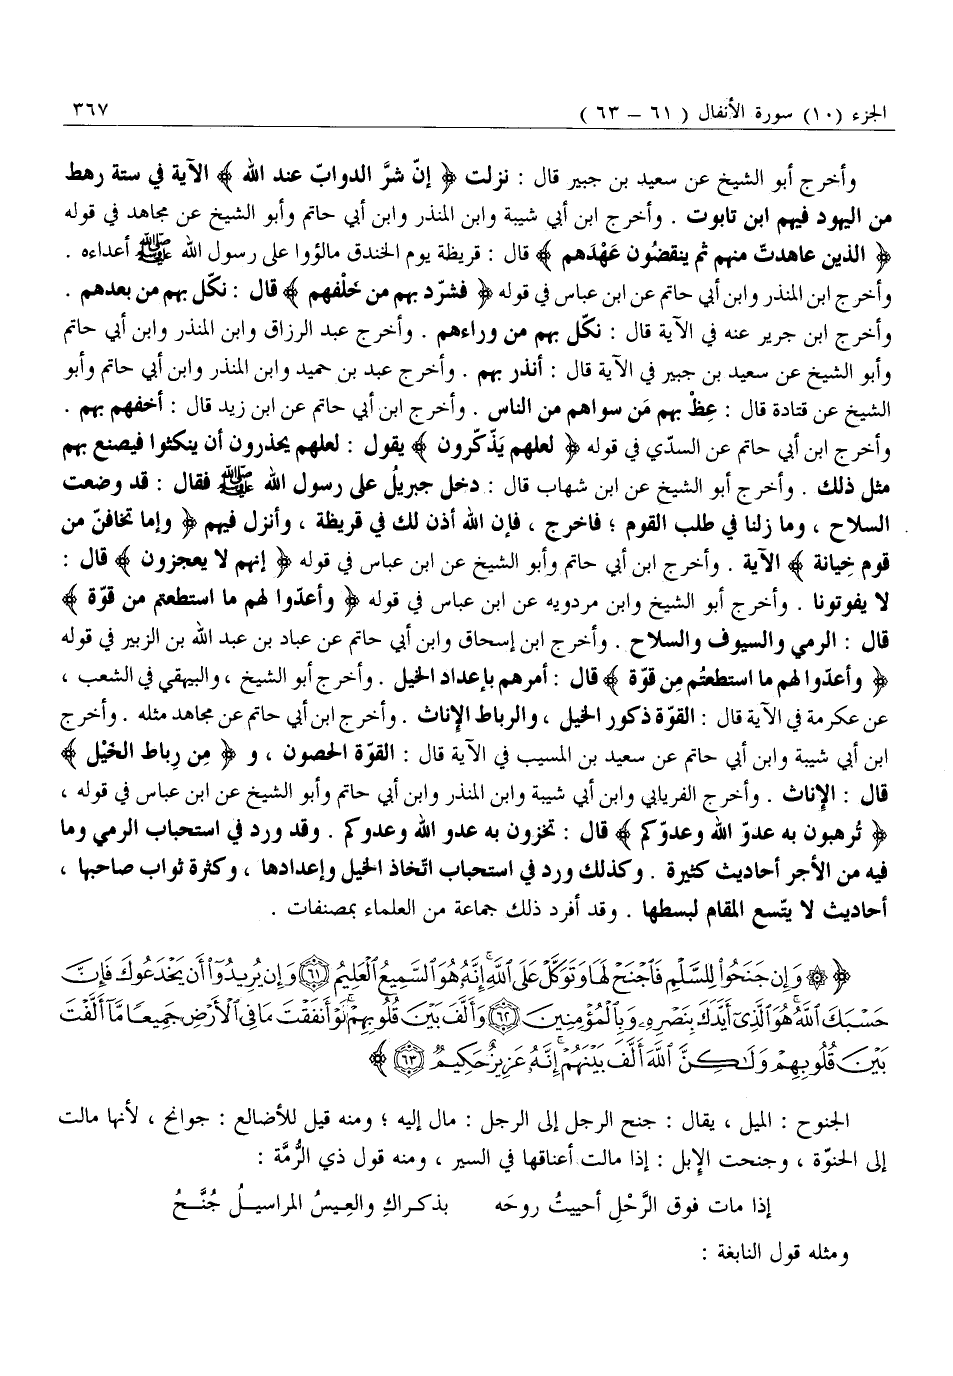 الجزء (١٠) سورة الأنفال ( ٦١ – ٦٣ ) ٣٦٧
وأخرج أبو الشيخ عن سعيد بن جبير قال : نزلت ﴿ إنّ شرَّ الدوابّ عند الله ﴾ الآية في ستة رهط
من اليهود فيهم ابن تابوت . وأخرج ابن أبي شيبة وابن المنذر وابن أبي حاتم وأبو الشيخ عن مجاهد في قوله
﴿ الذين عاهدتّ منهم ثم ينقضُون عَهْدَهم ﴾ قال : قريظة يوم الخندق مالؤوا على رسول الله ﷺ أعداءه .
وأخرج ابن المنذر وابن أبي حاتم عن ابن عباس في قوله ﴿ فشرّد بهم من خَلْفهم ﴾ قال : نكّل بهم من بعدهم .
وأخرج ابن جرير عنه في الآية قال : نكّل بهم من وراءهم . وأخرج عبد الرزاق وابن المنذر وابن أبي حاتم
وأبو الشيخ عن سعيد بن جبير في الآية قال : أنذر بهم . وأخرج عبد بن حميد وابن المنذر وابن أبي حاتم وأبو
الشيخ عن قتادة قال : عِظْ بهم مَن سواهم من الناس . وأخرج ابن أبي حاتم عن ابن زيد قال : أخفهم بهم .
وأخرج ابن أبي حاتم عن السدّي في قوله ﴿ لعلهم يَذّكّرون ﴾ يقول : لعلهم يحذرون أن ينكثوا فيصنع بهم
مثل ذلك . وأخرج أبو الشيخ عن ابن شهاب قال : دخل جبريلُ على رسول الله ﷺ فقال : قد وضعت
السلاح ، وما زلنا في طلب القوم ؛ فاخرج ، فإن الله أذن لك في قريظة ، وأنزل فيهم ﴿ وإما تخافنّ من
قوم خِيانة ﴾ الآية . وأخرج ابن أبي حاتم وأبو الشيخ عن ابن عباس في قوله ﴿ إنهم لا يعجزون ﴾ قال :
لا يفوتونا . وأخرج أبو الشيخ وابن مردويه عن ابن عباس في قوله ﴿ وأعدّوا لهم ما استطعتم من قوّة ﴾
قال : الرمي والسيوف والسلاح . وأخرج ابن إسحاق وابن أبي حاتم عن عباد بن عبد الله بن الزبير في قوله
﴿ وأعدّوا لهم ما استطعتُم مِن قوّة ﴾ قال : أمرهم بإعداد الخيل . وأخرج أبو الشيخ ، والبيهقي في الشعب ،
عن عكرمة في الآية قال : القوّة ذكور الخيل ، والرباط الإناث . وأخرج ابن أبي حاتم عن مجاهد مثله . وأخرج
ابن أبي شيبة وابن أبي حاتم عن سعيد بن المسيب في الآية قال : القوّة الحصون ، و ﴿ مِن رِباط الخَيْل ﴾
قال : الإناث . وأخرج الفريابي وابن أبي شيبة وابن المنذر وابن أبي حاتم وأبو الشيخ عن ابن عباس في قوله ،
﴿ تُرهبون به عدوّ الله وعدوّكم ﴾ قال : تخزون به عدو الله وعدوكم . وقد ورد في استحباب الرمي وما
فيه من الأجر أحاديث كثيرة . وكذلك ورد في استحباب اتّخاذ الخيل وإعدادها ، وكثرة ثواب صاحبها ،
أحاديث لا يتّسع المقام لبسطها . وقد أفرد ذلك جماعة من العلماء بمصنفات .
﴿ ۞ وَإِن جَنَحُوا۟ لِلسَّلْمِ فَٱجْنَحْ لَهَا وَتَوَكَّلْ عَلَى ٱللَّهِ ۚ إِنَّهُۥ هُوَ ٱلسَّمِيعُ ٱلْعَلِيمُ ٦١ وَإِن يُرِيدُوٓا۟ أَن يَخْدَعُوكَ فَإِنَّ
حَسْبَكَ ٱللَّهُ ۚ هُوَ ٱلَّذِىٓ أَيَّدَكَ بِنَصْرِهِۦ وَبِٱلْمُؤْمِنِينَ ٦٢ وَأَلَّفَ بَيْنَ قُلُوبِهِمْ ۚ لَوْ أَنفَقْتَ مَا فِى ٱلْأَرْضِ جَمِيعًا مَّآ أَلَّفْتَ
بَيْنَ قُلُوبِهِمْ وَلَٰكِنَّ ٱللَّهَ أَلَّفَ بَيْنَهُمْ ۚ إِنَّهُۥ عَزِيزٌ حَكِيمٌ ٦٣ ﴾
الجنوح : الميل ، يقال : جنح الرجل إلى الرجل : مال إليه ؛ ومنه قيل للأضالع : جوانح ، لأنها مالت
إلى الحنوّة ، وجنحت الإبل : إذا مالت أعناقها في السير ، ومنه قول ذي الرُّمَّة :
إذا مات فوق الرَّحْلِ أحييتُ روحَه بذكـراكِ والعِيسُ المراسيــلُ جُنَّــحُ
ومثله قول النابغة :